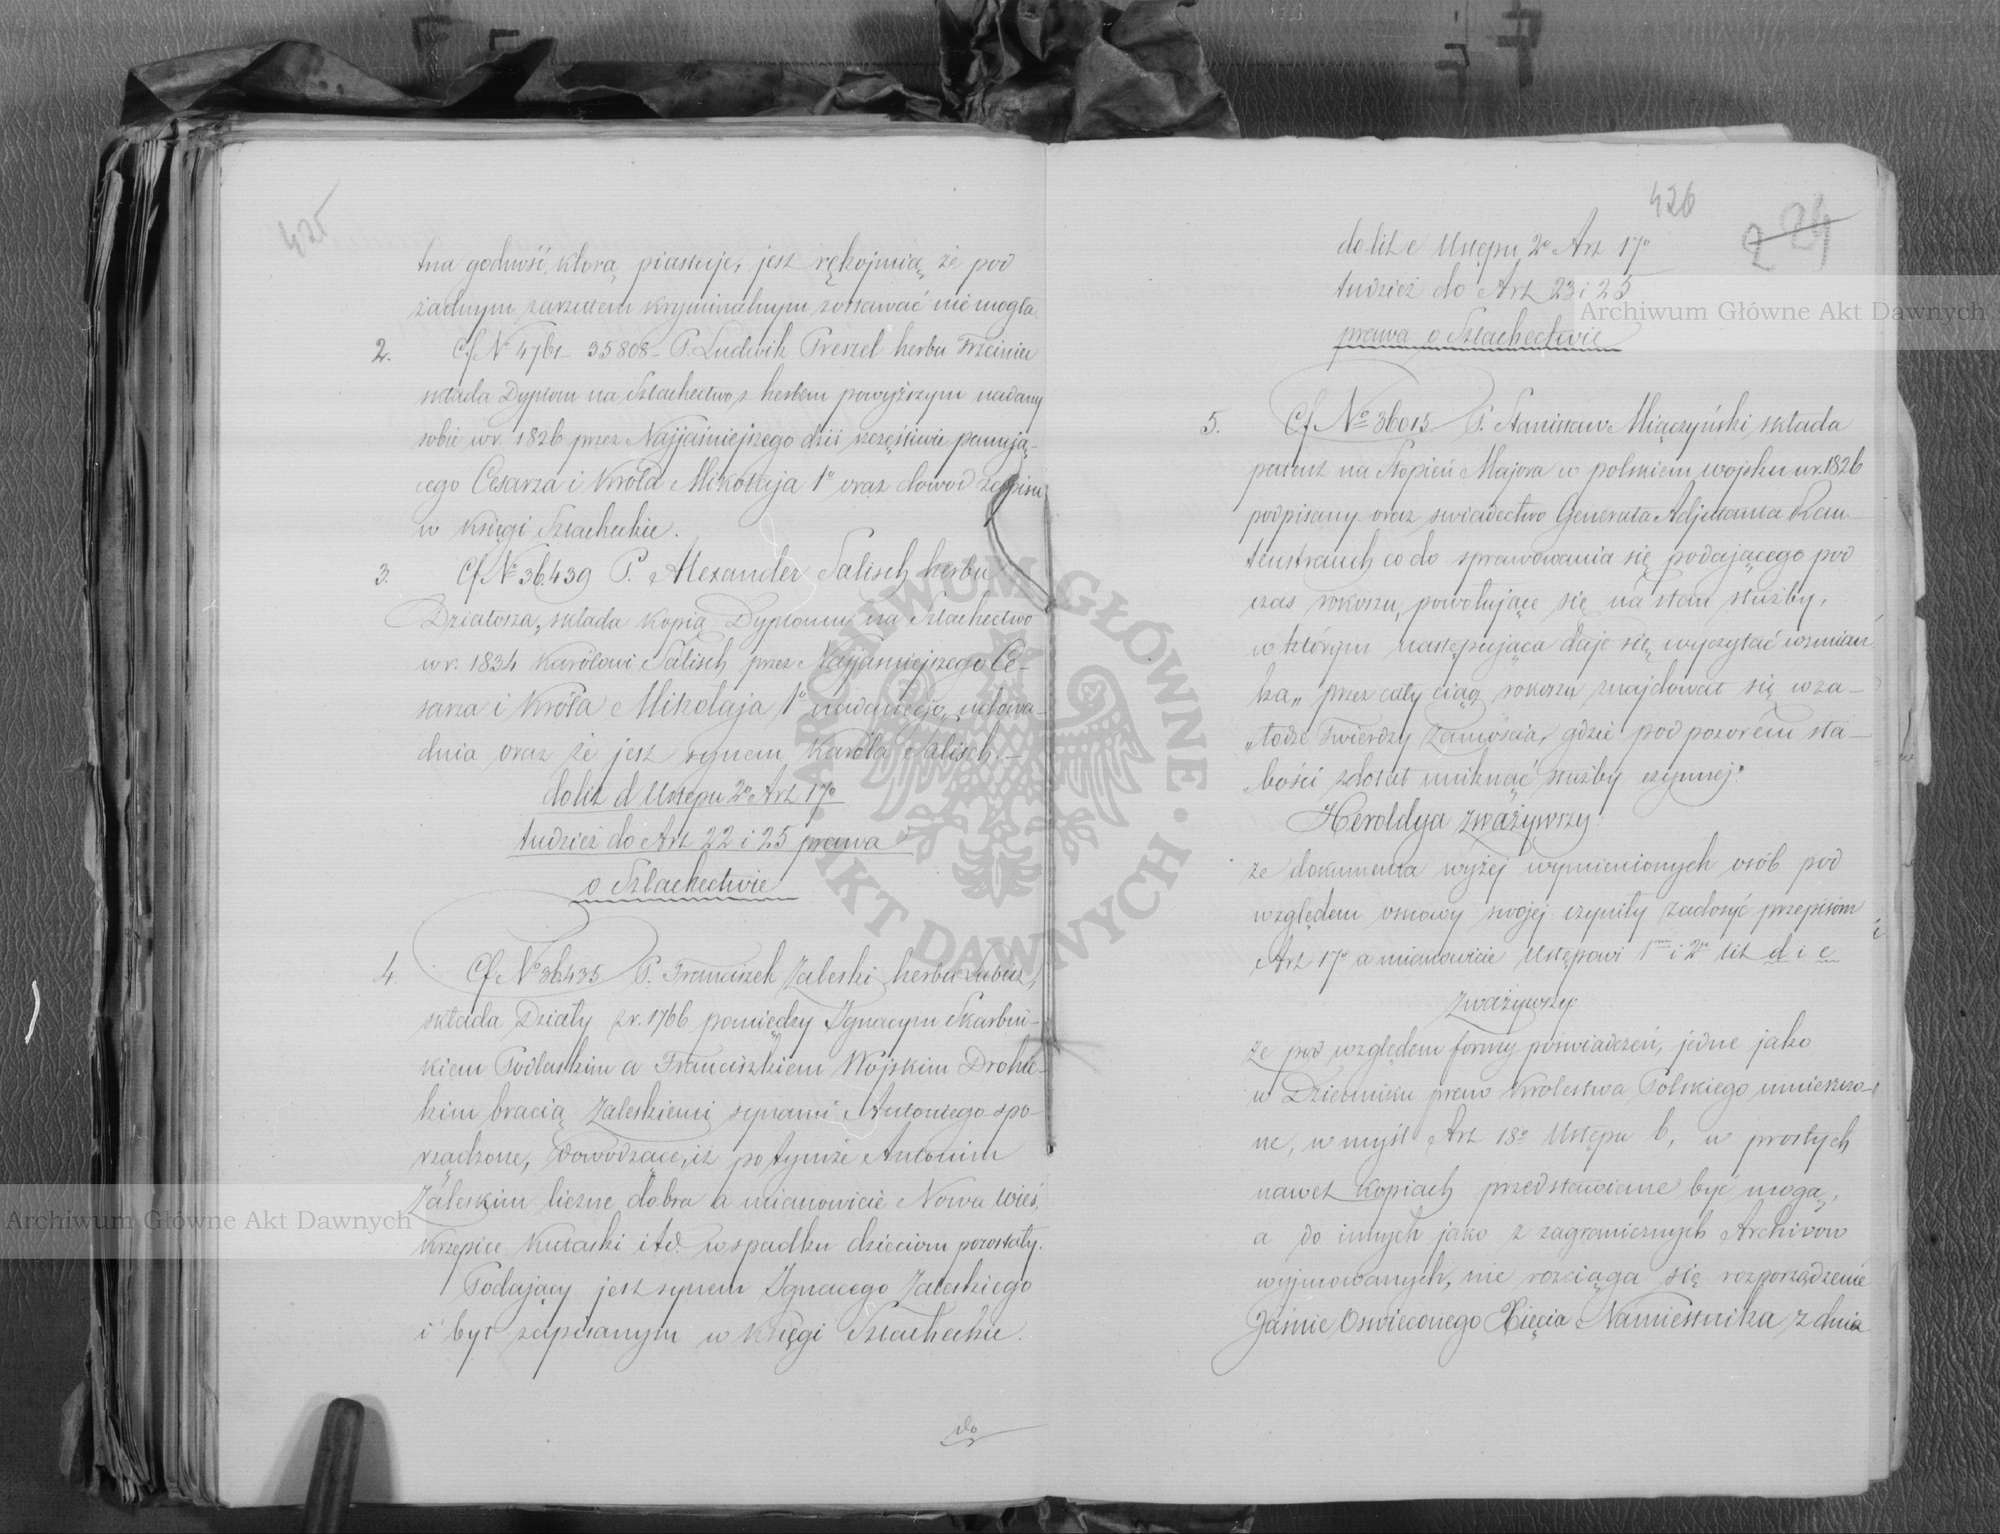 425
tna godność, którą piastuje, jest rękojmią, że pod
żadnym zarzutem kryminalnym zostawać nie mogła.
2. Cf № 4761 – 35808 – P. Ludwik Preszel herbu Trzciniec
składa Dyplom na Szlachectwo z herbem powyższym nadany
sobie w r. 1826 przez Najjaśniejszego dziś szczęśliwie panują-
cego Cesarza i Króla Mikołaja 1o oraz dowód zapisu
w Księgi Szlacheckie.
3. Cf № 36.439 P. Alexander Salisch herbu
Działosza, składa kopią Dyplomu na Szlachectwo
w r. 1834 Karólowi Salisch przez Najjaśniejszego Ce-
sarza i Króla Mikołaja 1o nadanego, udowa-
dnia oraz że jest synem Karóla Salisch. –
do lit d Ustępu 2o Art 17o
tudzież do Art 22 i 25 prawa
o Szlachectwie
4. Cf № 36435 P. Franciszek Zaleski herbu Lubicz,
składa Działy z r. 1766 pomiędzy Ignacym Skarbni-
kiem Podlaskim a Franciszkiem Wojskim Drohic-
kim bracią Zaleskiemi synami Antoniego spo-
rządzone, dowodzące, iż po tymże Antonim
Zaleskim liczne dobra a mianowicie Nowa Wieś,
Krzepice Kutaski itd. w spadku dzieciom pozostały.
Podający jest synem Ignacego Zaleskiego
i był zapisanym w Księgi Szlacheckie.
do
426
2 24
do lit e Ustępu 2o Art 17o
tudzież do Art 23 i 25
prawa o Szlachectwie
5. Cf № 36015 P. Stanisław Miączyński, składa
patent na Stopień Majora w polskiem wojsku w r. 1826
podpisany oraz swiadectwo Generała Adjutanta Rau-
tenstrauch co do sprawowania się podającego pod
czas rokoszu, powołujące się na stan służby,
w którym następująca daje się wyczytać wzmian
ka „ przez cały ciąg rokoszu znajdował się w za–
„łodze twierdzy Zamościa, gdzie pod pozorem sła–
„bości zdołał uniknąć służby czynnej."
Heroldya zważywszy:
że dokumenta wyżej wymienionych osób pod
względem osnowy swojej czyniły zadosyć przepisom
Art 17o a mianowicie Ustępowi 1mu i 2mu lit d i e
i
Zważywszy:
że pod względem formy poświadczeń, jedne jako
w Dzienniku praw Królestwa Polskiego umieszczo-
ne, w myśl Art 18o Ustępu b, w prostych
nawet kopiach przedstawiane być mogą,
a do innych jako z zagranicznych Archivów
wyjmowanych, nie rozciąga się rozporządzenie
Jaśnie Oswieconego Xięcia Namiestnika z dnia
Archiwum Główne Akt Dawnych
Archiwum Główne Akt Dawnych
ARCHIWUM GŁÓWNE • AKT DAWNYCH •